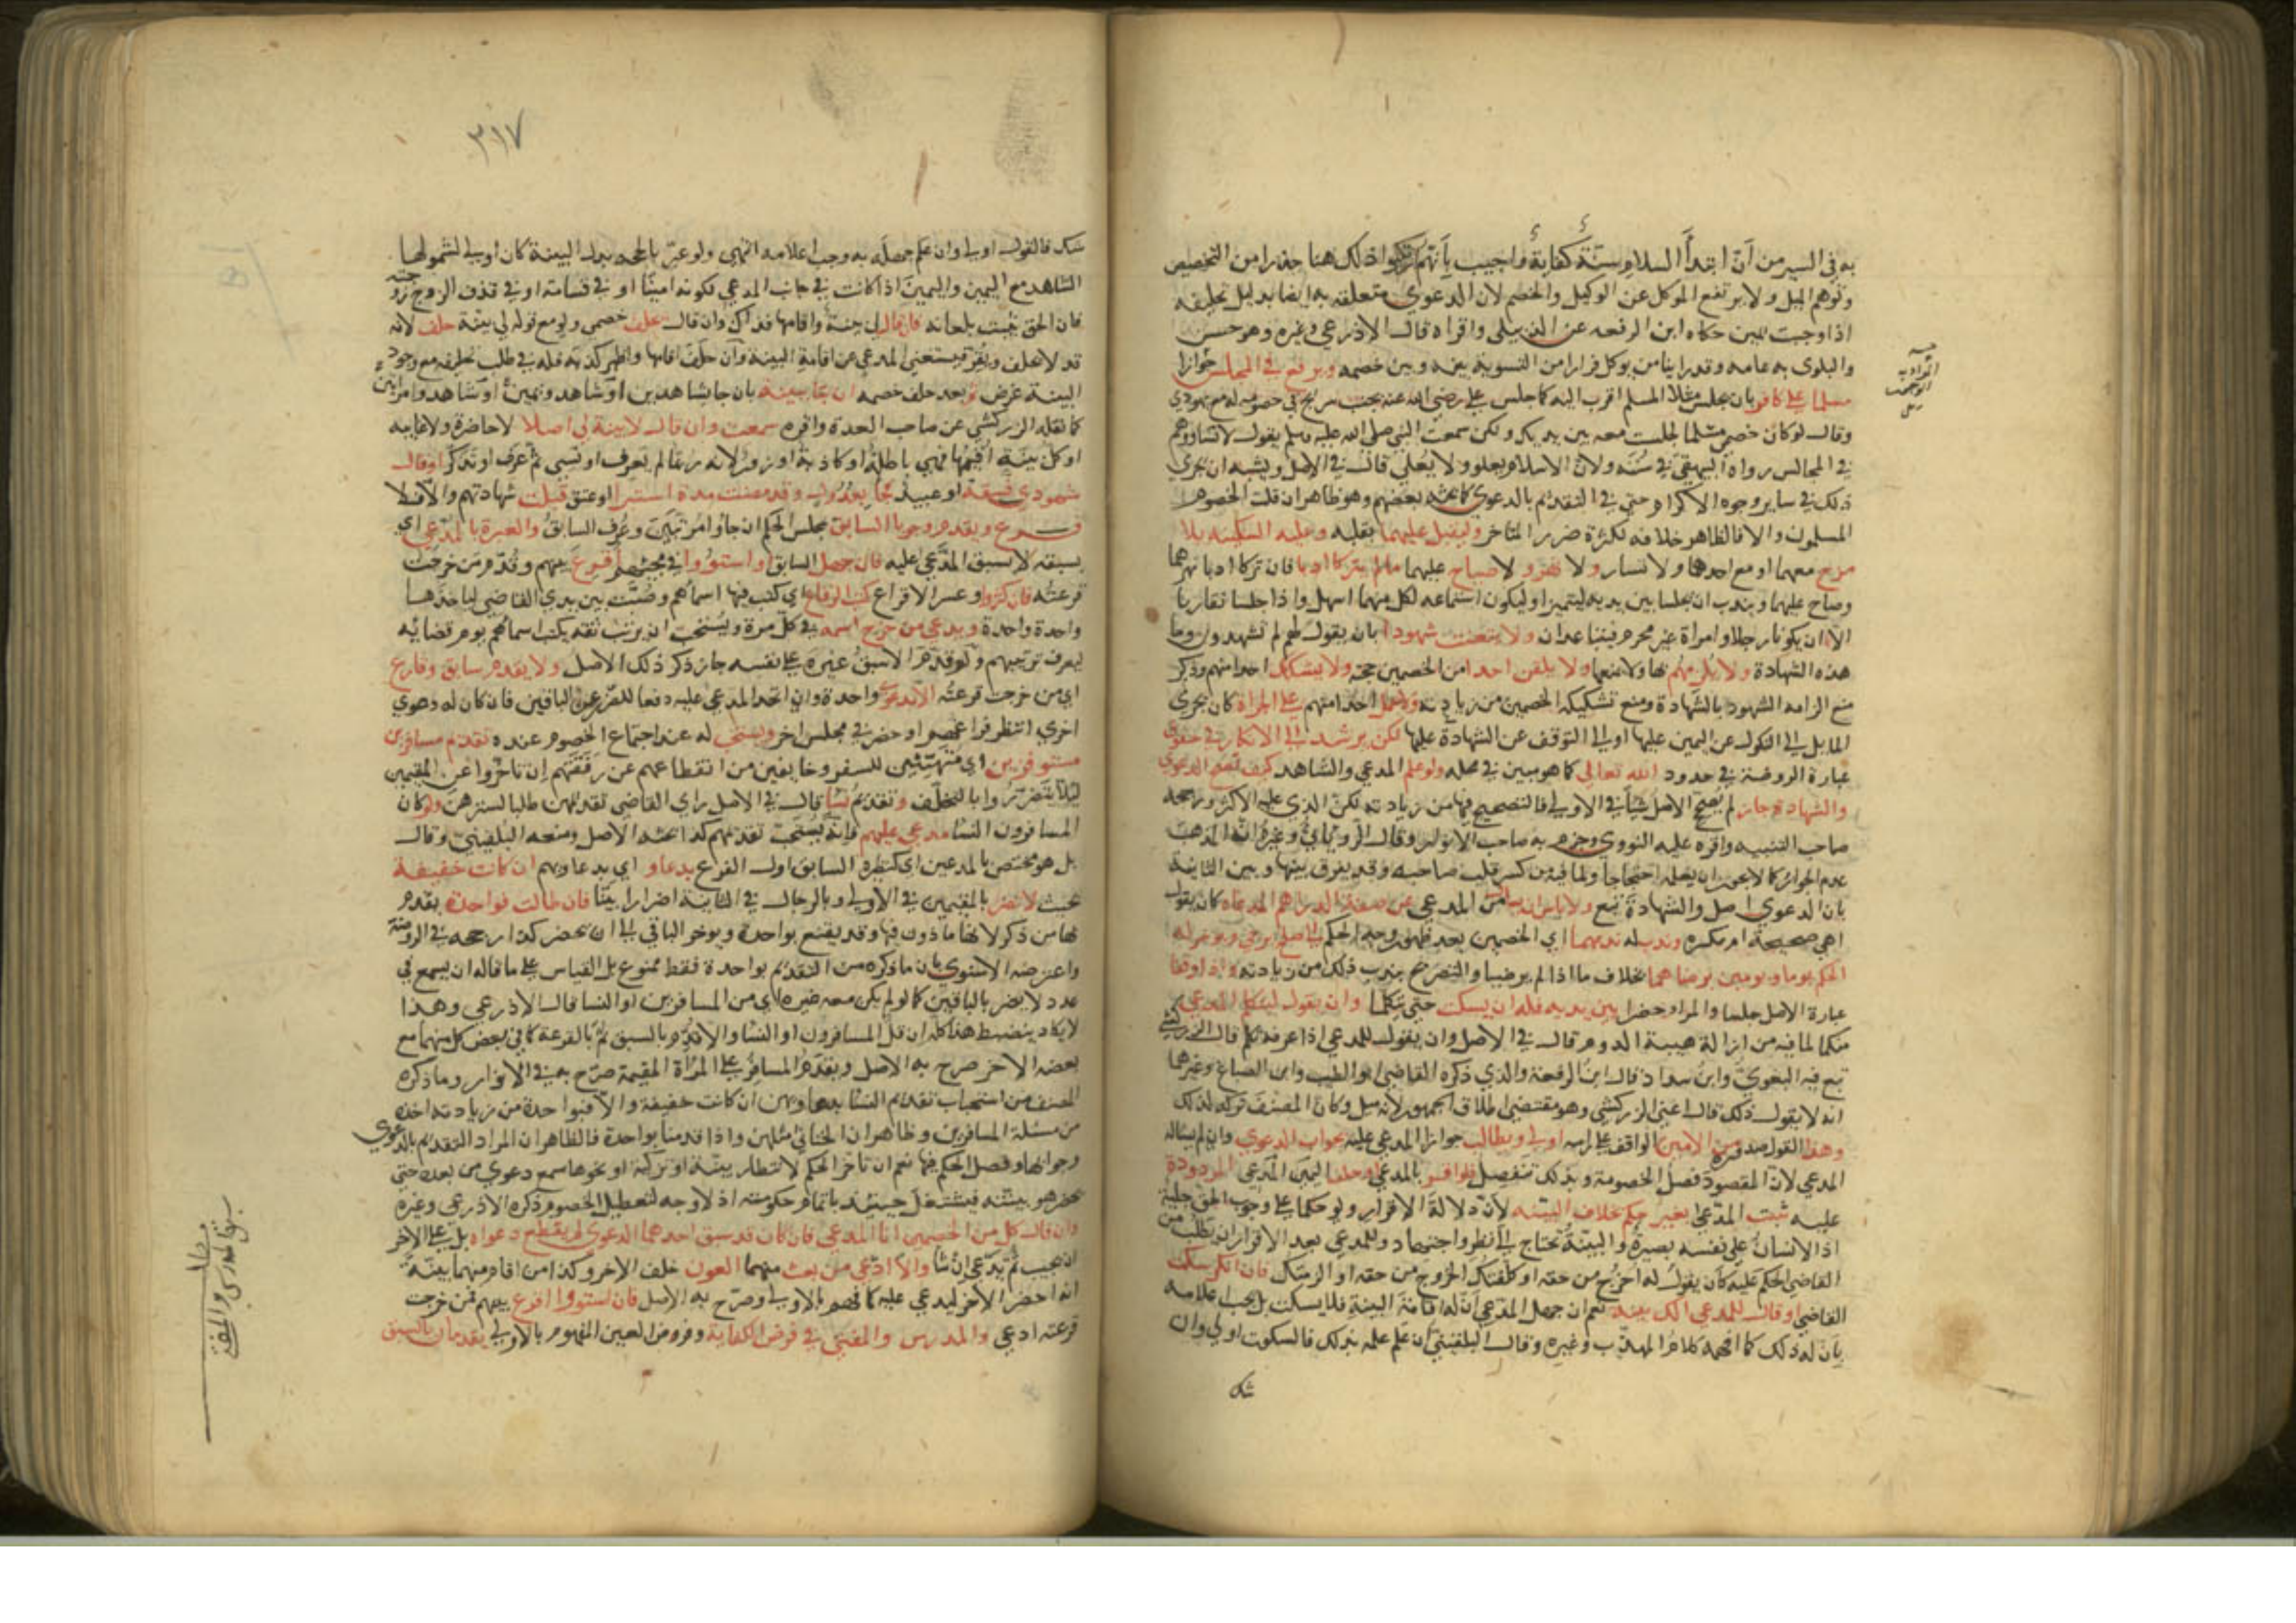 به في السير من أنّ ابتدأ السلام سنّة كفاية وأجيب بأنهم تركوا ذلك هنا حذرا من التخصيص
وتوهم الميل ولا يرتفع الموكل عن الوكيل والخصم لان الدعوى متعلقة به ايضا بدليل تحليفه
اذا وجبت يمين حكاه ابن الرفعه عن الزبيلي واقراه قال الاذرعي وغيره وهو حسن
والبلوى به عامه وقد راينا من يوكل فرارا من التسوية بينه وبين خصمه ويرفع في المجلس جوازا
مسلما على كافر بان يجلس مثلا المسلم اقرب اليه كما جلس علي رضي الله عنه بجنب شريح في خصومة له مع يهودي
وقال لو كان خصمي مسلما لجلست معه بين يديك ولكن سمعت النبي صلى الله عليه وسلم يقول لا تساووهم
في المجالس رواه البيهقي في سننه ولان الاسلام يعلو ولا يعلى قال في الاصل ويشبه ان يجري
ذلك في ساير وجوه الاكرام حتى في التقديم بالدعوى كما بحثه بعضهم وهو ظاهر ان قلت الخصوم
المسلمون والا فالظاهر خلافه لكثرة ضرر المتاخر وليقبل عليهما بقلبه وعليه السكينه بلا
مزح معهما او مع احدهما ولا تسار ولا نهر ولا صياح عليهما مالم يتركا ادبا فان تركا ادبا نهرهما
وصاح عليهما ويندب ان يجلسا بين يديه ليتميزا وليكون استماعه لكل منهما اسهل واذا جلسا تقاربا
الا ان يكونا رجلا وامراة غير محرم فيتباعدان ولا يتعنت شهودا بان يقول لهم لم تشهدون وما
هذه الشهادة ولا يلزمهم بها ولا بمنعها ولا يلقن احدا من الخصمين حجة ولا يشكك احدا منهم وذكر
منع الزامه الشهود بالشهادة ومنع تشكيكه الخصمين من زيادته
المايل الى النكول عن اليمين عليها او الى التوقف عن الشهادة عليها لكن يرشد الى الانكار في حقوق
عبارة الروضة في حدود الله تعالى كما هو مبين في محله ولو علم المدعي والشاهد كيف تصح الدعوى
والشهادة جاز لم يصحح الاصل شيا في الاولى فالتصحيح فيها من زيادته لكن الذي عليه الاكثر ورجحه
صاحب التنبيه واقره عليه النووي وجزم به صاحب الانوار وقال الروياني وغيره انه المذهب
عدم الجواز كما لا يجوز ان يعلمه احتجاجا ولما فيه من كسر قلب صاحبه وقد يفرق بينها وبين الثانية
بان الدعوى اصل والشهادة تبع ولا باس المدعي عن صفة الدراهم المدعاه كان يقول
اهي صحيحة ام مكسره وندب له ندبهما اي الخصمين بعد ظهور وجه الحكم الى صلح يرجى ويوخر له
الحكم يوما ويومين برضاهما بخلاف ما اذا لم يرضيا والتصريح بندب ذلك من زيادته واذا وقفا
عبارة الاصل جلسا والمراد حضرا بين يديه فله ان يسكت حتى يتكلما وان يقول ليتكلم المدعي
منكما لما فيه من ازالة هيبة القدوم قال في الاصل وان يقول للمدعي اذا عرفه تكلم قال الزركشي
تبع فيه البغوي وابن شداد قال ابن الرفعة والذي ذكره القاضي ابو الطيب وابن الصباغ وغيرهما
انه لا يقول ذلك قال اعني الزركشي وهو مقتضى اطلاق الجمهور لانه ميل وكان المصنف تركه لذلك
وهذا القول صدوره من الامين الواقف على راسه اولى ويطالب جوازا المدعى عليه بجواب الدعوى وان لم يساله
المدعي لان المقصود فصل الخصومة وبذلك تنفصل فلو اقر بالمدعى او حلف اليمين المدعي المردودة
عليه ثبت المدعى بغير حكم بخلاف البينه لان دلالة الاقرار ولو حكما على وجوب الحق جلية
اذ الانسان على نفسه بصيرة والبينة تحتاج الى نظر واجتهاد وللمدعي بعد الاقرار ان يطلب من
القاضي الحكم عليه كان يقول له اخرج من حقه او كلفتك الخروج من حقه او الزمتك فان انكر سكت
القاضي او قال للمدعي الك بينة نعم ان جهل المدعي ان له اقامة البينة فلا يسكت بل يجب اعلامه
بان له ذلك كما افهمه كلام المهذب وغيره وقال البلقيني ان علم علمه بذلك فالسكوت اولى وان
شك
٣١٧
شك فالقول اولى وان علم جهله به وجب اعلامه انتهى ولو عبر بالحجه بدل البينة كان اولى لشمولها
الشاهد مع اليمين واليمين اذا كانت في جانب المدعي لكونه امينا او في قسامة او في قذف الزوج زوجته
فان الحق يثبت بلعانه فان قال لي بينة واقامها فذاك وان قال تحلف خصمي ولو مع قوله لي بينة حلف لانه
قد لا يحلف ويقر فيستغني المدعي عن اقامة البينة وان حلف اقامها واظهر كذبه فله في طلب تحليفه مع وجود
البينة غرض وبعد حلف خصمه ان جا ببينة بان جا بشاهدين او شاهد ويمين او شاهد وامراتين
كما نقله الزركشي عن صاحب العدة واقره سمعت وان قال لا بينة لي اصلا لا حاضرة ولا غايبه
او كل بينة اقيمها فهي باطلة او كاذبة او زور لانه ربما لم يعرف او نسي ثم عرف او تذكر او قال
شهودي فسقة او عبيد فجا بعدول وقد مضت مدة استبرا او عتق قبلت شهادتهم والا فلا
فرع ويقدم وجوبا السابق مجلس الحكم ان جاؤا مرتبين وعرف السابق والعبرة بالمدعي اي
بسبقه لا بسبق المدعى عليه فان جهل السابق او استووا في مجيئهم اقرع بينهم وقدم من خرجت
قرعته فان كثروا وعسر الاقراع كتب الرقاع اي كتب فيها اسماؤهم وصبت بين يدي القاضي لياخذها
واحدة واحدة ويدعي من خرج اسمه في كل مرة ويستحب ان يرتب ثقة يكتب اسماهم يوم قضائه
ليعرف ترتيبهم ولو قدم الاسبق غيره على نفسه جاز ذكر ذلك الاصل ولا يقدم سابق وقارع
اي من خرجت قرعته الا بدعوى واحدة وان اتحد المدعى عليه دفعا للضرر عن الباقين فان كان له دعوى
اخرى انتظر فراغهم او حضر في مجلس اخر ويستحب له عند اجتماع الخصوم عنده تقديم مسافرين
مستوفزين اي متهيئين للسفر وخايفين من انقطاعهم عن رفقتهم ان تاخروا عن المقيمين
ليلا يتضرروا بالتخلف وتقديم نسا قال في الاصل راى القاضي تقديمهن طلبا لسترهن ولو كان
المسافرون النسا مدعى عليهم فانه يستحب تقديمهم كذا بحثه الاصل ومنعه البلقيني وقال
بل هو مختص بالمدعين اي كنظيره السابق اول الفرع بدعاو اي بدعاويهم ان كانت خفيفة
بحيث لا تضر بالمقيمين في الاولى وبالرجال في الثانية اضرارا بينا فان طالت فواحدة يقدم
بها من ذكر لانها ماذون فيها وقد يقنع بواحدة ويوخر الباقي الى ان يحضر كذا رجحه في الروضة
واعترضه الاسنوي بان ما ذكره من التقديم بواحدة فقط ممنوع بل القياس على ما قاله ان يسمع في
عدد لا يضر بالباقين كما لو لم يكن معه غيره اي من المسافرين او النسا قال الاذرعي وهذا
لا يكاد ينضبط هذا كله ان قل المسافرون او النسا والا قدم بالسبق ثم بالقرعة كما في بعض كل منهما مع
بعضه الاخر صرح به الاصل ويقدم المسافر على المراة المقيمة صرح به في الانوار وما ذكره
المصنف من استحباب تقديم النسا بدعاويهن ان كانت خفيفة والا فبواحدة من زيادته اخذه
من مسئلة المسافرين وظاهر ان الخناثى مثلهن واذا قدمنا بواحدة فالظاهر ان المراد التقديم بالدعوى
وجوابها وفصل الحكم فيها نعم ان تاخر الحكم لانتظار بينة او تزكية او نحوها سمع دعوى من بعده حتى
يحضر هو ببينته فيشتغل حينئذ باتمام حكومته اذ لا وجه لتعطيل الخصوم ذكره الاذرعي وغيره
وان قال كل من الخصمين انا المدعي فان كان قد سبق احدهما الدعوى لم يقطع دعواه بل على الاخر
ان يجيب ثم يدعي ان شا والا ادعى من بعث منهما العون خلف الاخر وكذا من اقام منهما بينة
انه احضر الاخر ليدعي عليه كما فهم بالاولى وصرح به الاصل فان استووا اقرع بينهم فمن خرجت
قرعته ادعى والمدرس والمفتي في فرض الكفاية وفروض العين المفهوم بالاولى يقدمان بالسبق